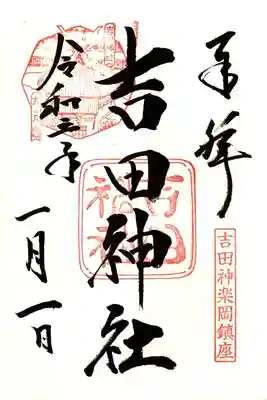 奉拝
吉田神楽岡鎮座
吉田神社
吉田神社
令和
年
一月一日